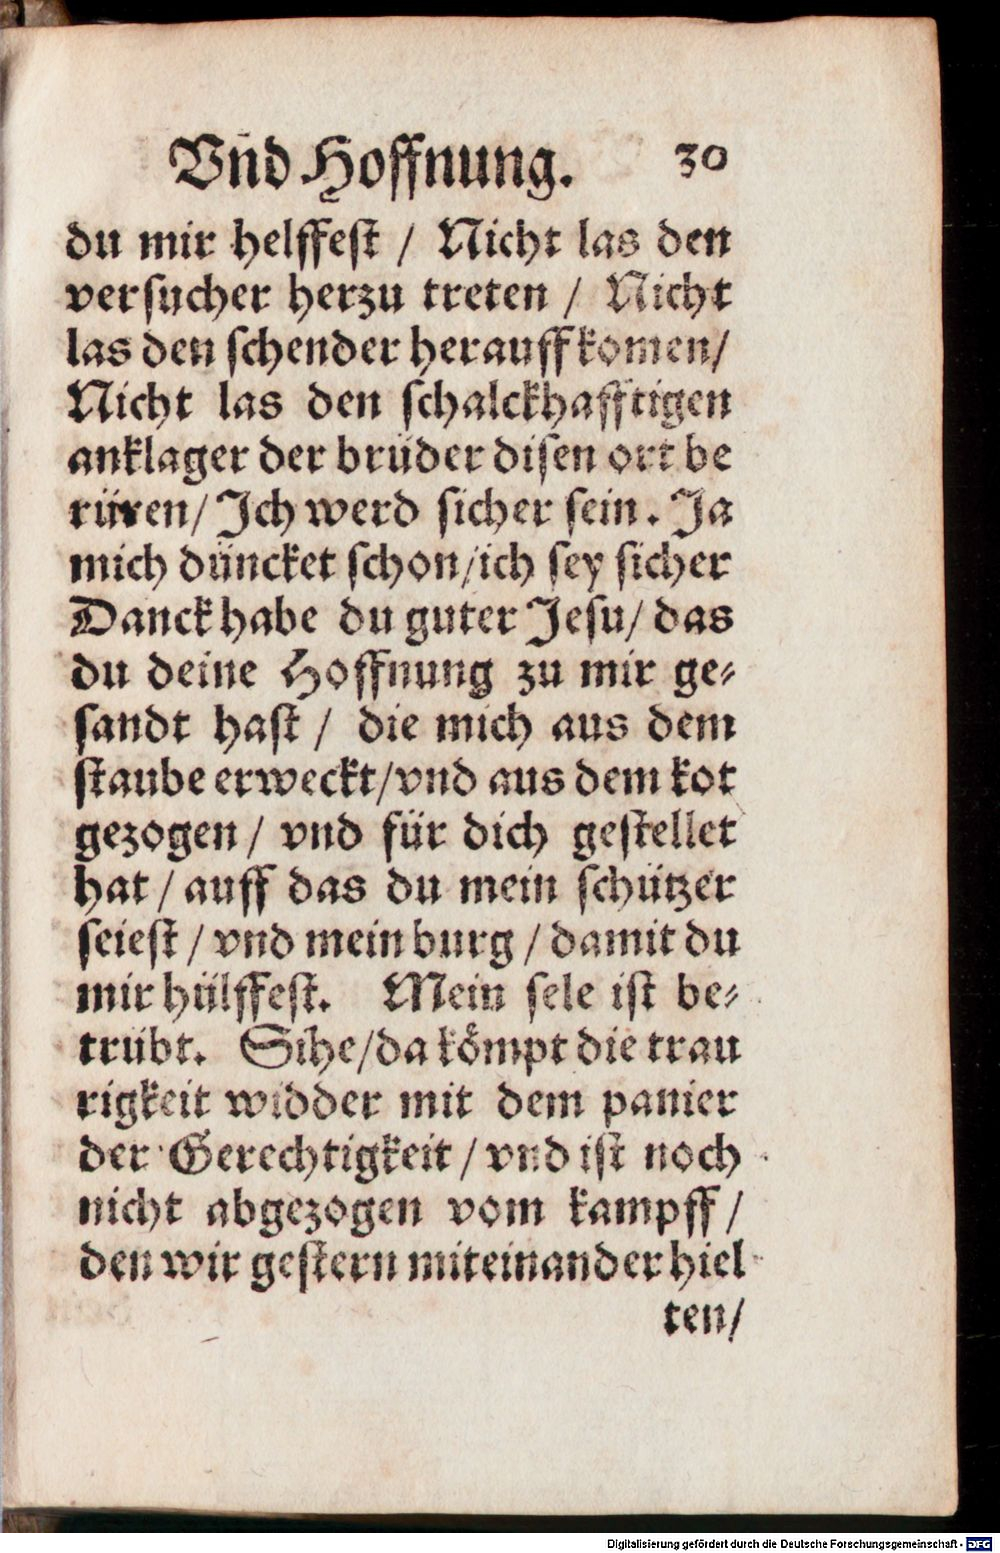 Vnd Hoffnung. 30
du mir helffest / Nicht las den
versucher herzu treten / Nicht
las den schender herauff komen/
Nicht las den schalckhafftigen
anklager der brüder disen ort be
rüren/ Ich werd sicher sein. Ja
mich düncket schon/ich sey sicher
Danck habe du guter Jesu/ das
du deine Hoffnung zu mir ge⸗
sandt hast / die mich aus dem
staube erweckt/vnd aus dem kot
gezogen / vnd für dich gestellet
hat / auff das du mein schützer
seiest / vnd mein burg / damit du
mir hülffest. Mein sele ist be⸗
trübt. Sihe/da kömpt die trau
rigkeit widder mit dem panier
der Gerechtigkeit / vnd ist noch
nicht abgezogen vom kampff /
den wir gestern miteinander hiel
ten/
Digitalisierung gefördert durch die Deutsche Forschungsgemeinschaft - DFG